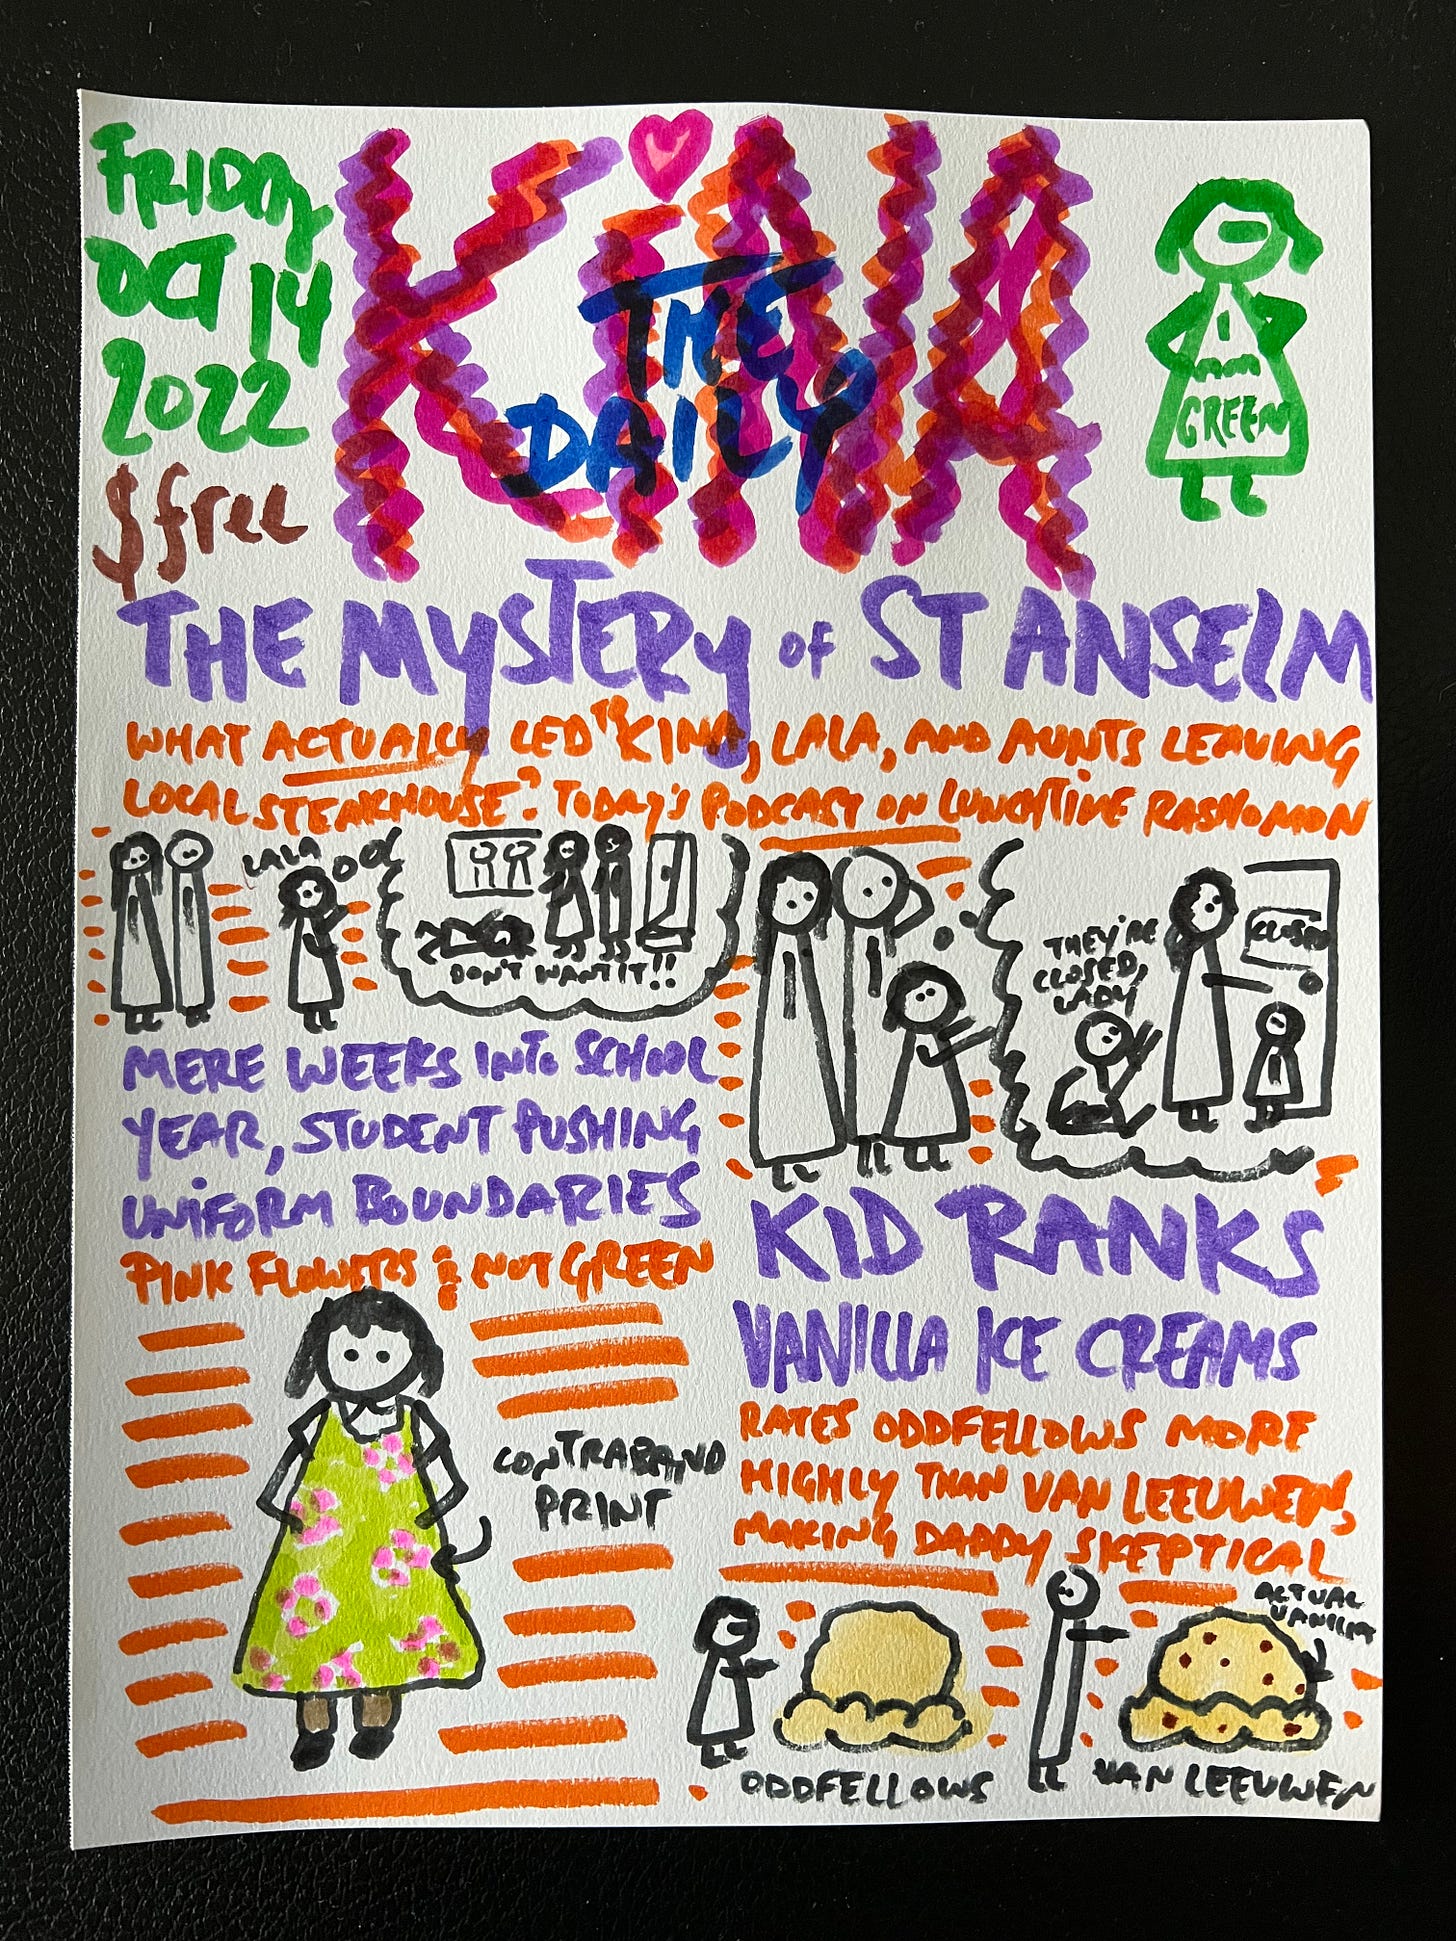 FRIDAY
OCT 14
2022
$free
KiNA
THE
DAILY
I
GREEN
THE MYSTERY OF ST ANSELM
WHAT ACTUALLY LED TO KINA, LALA, AND AUNTS LEAVING
LOCAL STEAKHOUSE? TODAY'S PODCAST ON LUNCHTIME RASHOMON
LALA
DON'T WANT IT!!
THEY'RE
CLOSED,
LADY
CLOSED
MERE WEEKS INTO SCHOOL
YEAR, STUDENT PUSHING
UNiFORM BOUNDARIES
PINK FLOWERS & NOT GREEN
CONTRABAND
PRINT
KID RANKS
VANILLA ICE CREAMS
RATES ODDFELLOWS MORE
HIGHLY THAN VAN LEEUWEN,
MAKING DADDY SKEPTICAL
ACTUAL
VANILLA
ODDFELLOWS
VAN LEEUWEN